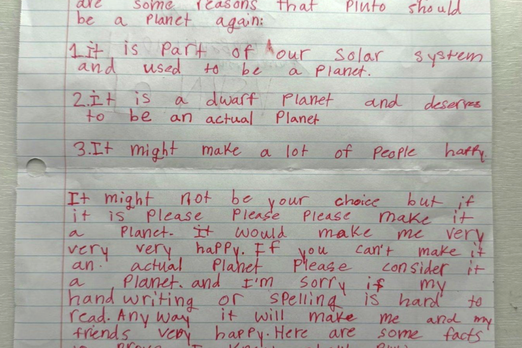 are some reasons that Pluto should
be a Planet again:
1.it is Part of our solar system
and used to be a Planet.
2.it is a dwarf Planet and deserves
to be an actual Planet
3.It might make a lot of People happy
It might not be your choice but if
it is Please Please Please make it
a Planet. it would make me very
very very happy. If you can't make it
an actual Planet Please consider it
a Planet. and I'm sorry if my
hand writing or spelling is hard to
read. Any way it will make me and my
friends very happy. Here are some facts